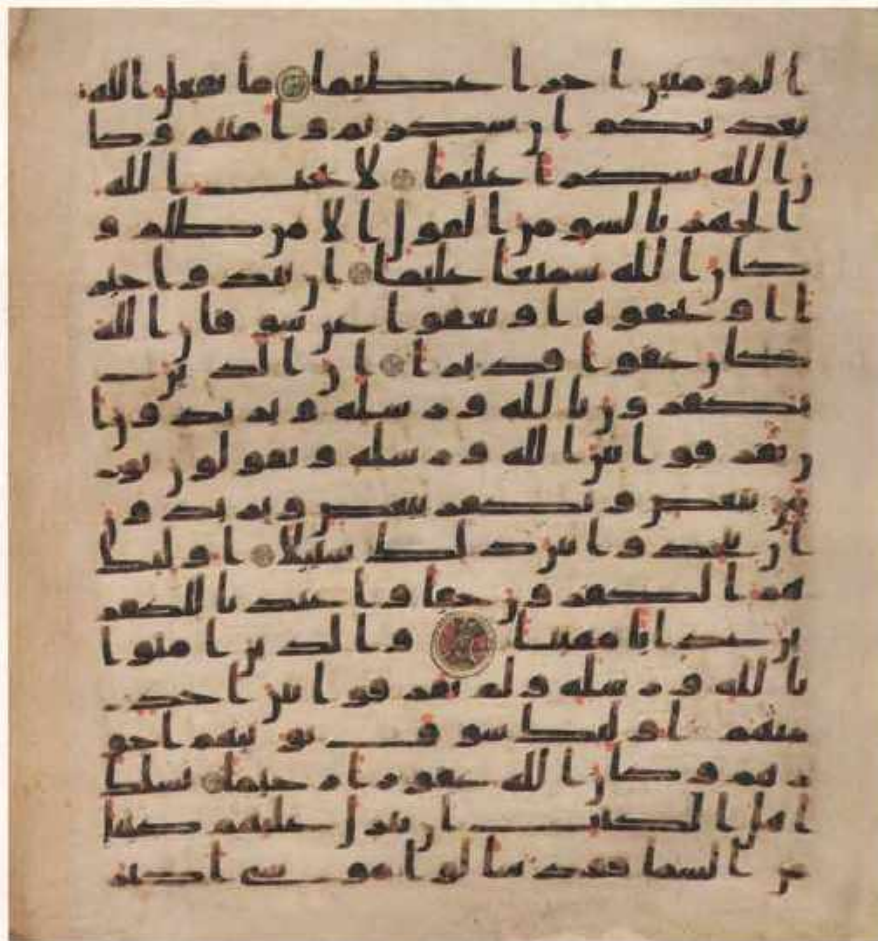 المومنين اجرا عظيما ما يفعل الله
بعذبكم ان شكرتم وامنتم وكا
ن الله شكرا عليما لا يحب الله
الجهر بالسو من القول الا من ظلم و
كان الله سميعا عليما ان تبدوا خير
ا او تخفوه او تعفوا عن سو فان الله
كان عفوا قديرا ان الذين
يكفرون بالله ورسله ويريدون ا
ن يفرقوا بين الله ورسله ويقولون نو
من ببعض ونكفر ببعض ويريدون
ان يتخذوا بين ذلك سبيلا اوليك
هم الكفرون حقا واعتدنا للكفر
ين عذابا مهينا والذين امنوا
بالله ورسله ولم يفرقوا بين احد
منهم اوليك سوف نوتيهم اجو
رهم وكان الله غفورا رحيما يسلك
اهل الكتب ان تنزل عليهم كتبا
من السما فقد سالوا موسى اكبر